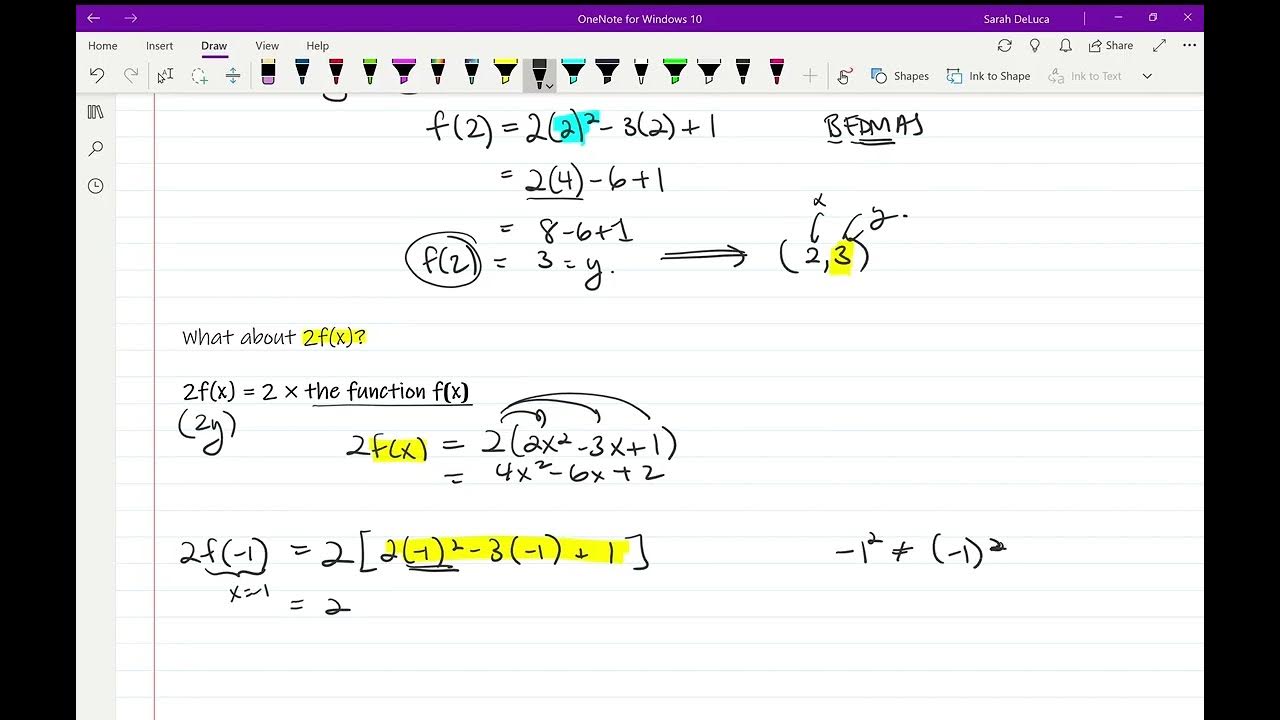 OneNote for Windows 10
Sarah DeLuca
Home Insert Draw View Help
Share
Shapes Ink to Shape Ink to Text
f(2) = 2(2)² - 3(2) + 1
BEDMAS
= 2(4) - 6 + 1
x
y.
= 8 - 6 + 1
f(2) = 3 = y. ⟹ (2, 3)
What about 2f(x)?
2f(x) = 2 × the function f(x)
(2y)
2f(x) = 2(2x² - 3x + 1)
= 4x² - 6x + 2
2f(-1) = 2[2(-1)² - 3(-1) + 1]
-1² ≠ (-1)²
x=-1
= 2